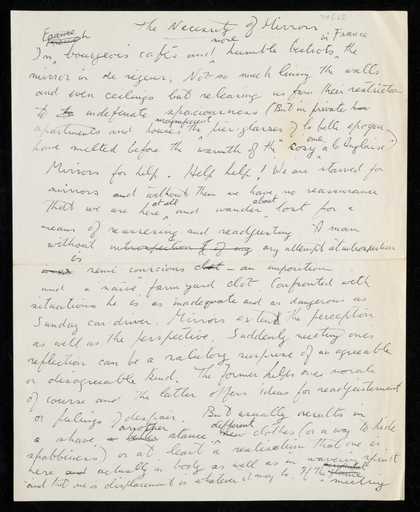 The Necessity of Mirrors
in France
In bourgeois cafés and more humble bistrots the
mirror is de rigeur. Not so much lining the walls
and even ceilings but releasing us from their restriction
to indefinate spaciousness (But in private
apartments and houses the magnificent pier glasses of la belle epoque
have melted before the warmth of the cosy one à l'Anglaise
Mirrors for help. Help help! We are starved for
mirrors and without them we have no reassurance
that we are here at all and wander about lost for a
means of reassuring and readjusting. A man
without any attempt at introspection
is semi conscious clot – an imposition
and a naive farmyard clot. Confronted with
situations he is as inadequate and as dangerous as
Sunday car driver. Mirrors extend the perception
as well as the perspective. Suddenly meeting ones
reflection can be a salutory surprise of an agreeable
or disagreeable kind. The former helps ones morale
of course and the latter offers ideas for readjustment
or feelings of despair. But usually results in
a shave, another stance, different clothes (or a way to hide
shabbiness) or at least a realisation that one is
here actually in body as well as in wavering spirit
and not in a displacement or whatever it may be. If the
meeting